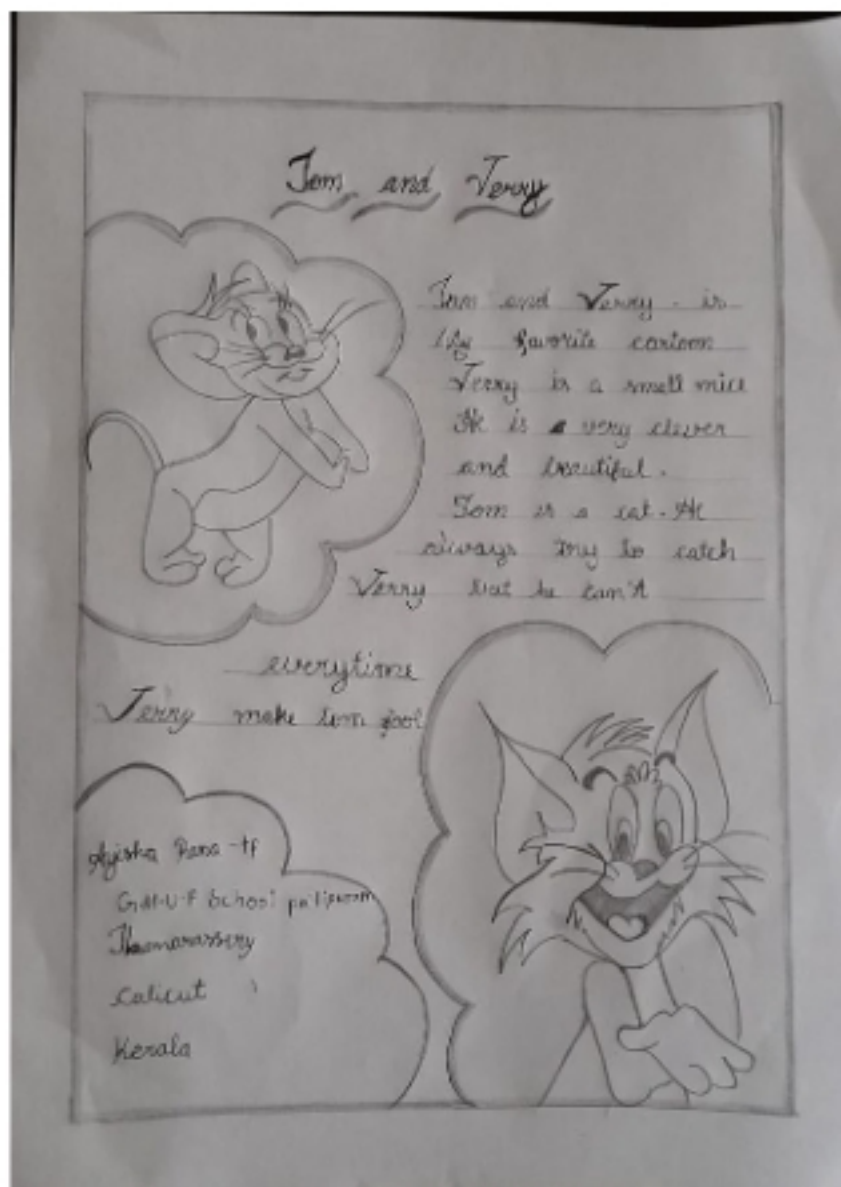 Tom and Jerry
Tom and Jerry - is
My favorite cartoon
Jerry is a small mice
He is a very clever
and beautiful.
Tom is a cat. He
always try to catch
Jerry but he can't
everytime
Jerry make tom fool
Ayisha Rana
School
Thamarassery
Calicut
Kerala